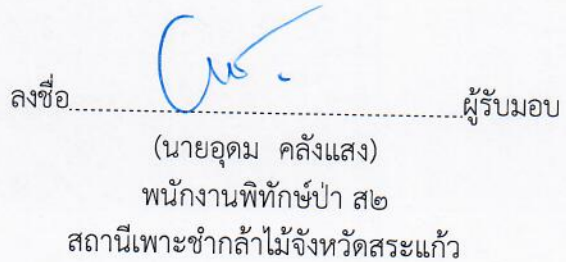 ลงชื่อ........................................................ผู้รับมอบ
(นายอุดม คลังแสง)
พนักงานพิทักษ์ป่า ส๒
สถานีเพาะชำกล้าไม้จังหวัดสระแก้ว